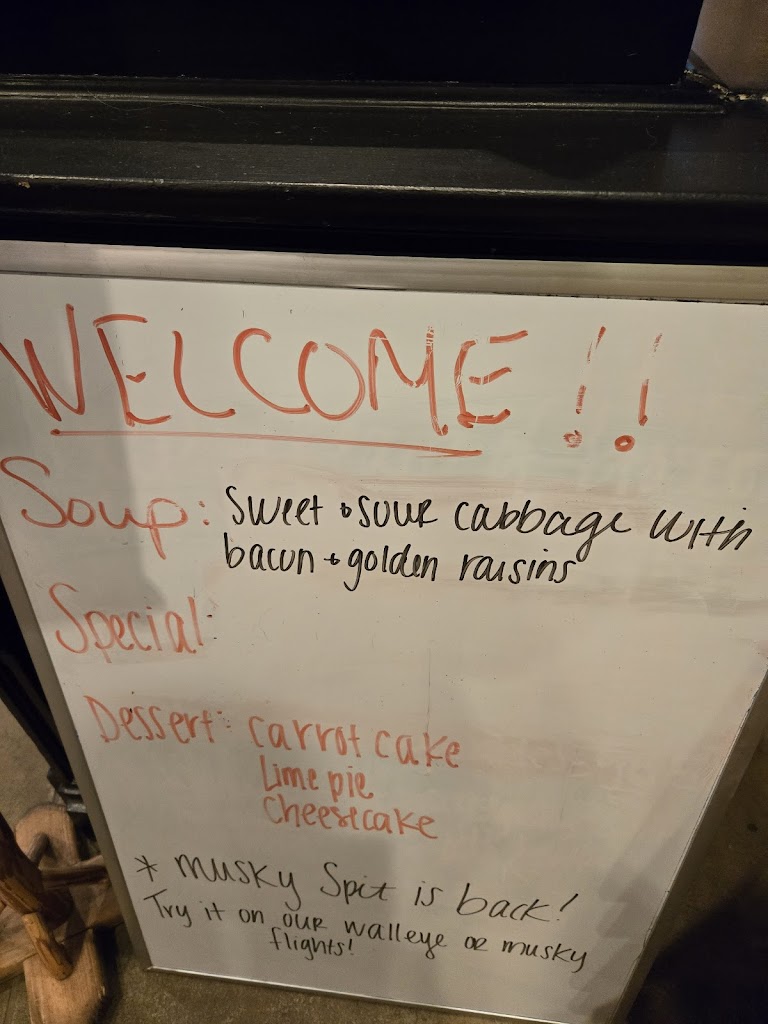 WELCOME!!
Soup: Sweet + sour cabbage with
bacon + golden raisins
Special:
Dessert: carrot cake
Lime pie
Cheesecake
* Musky Spit is back!
Try it on our walleye or musky
flights!